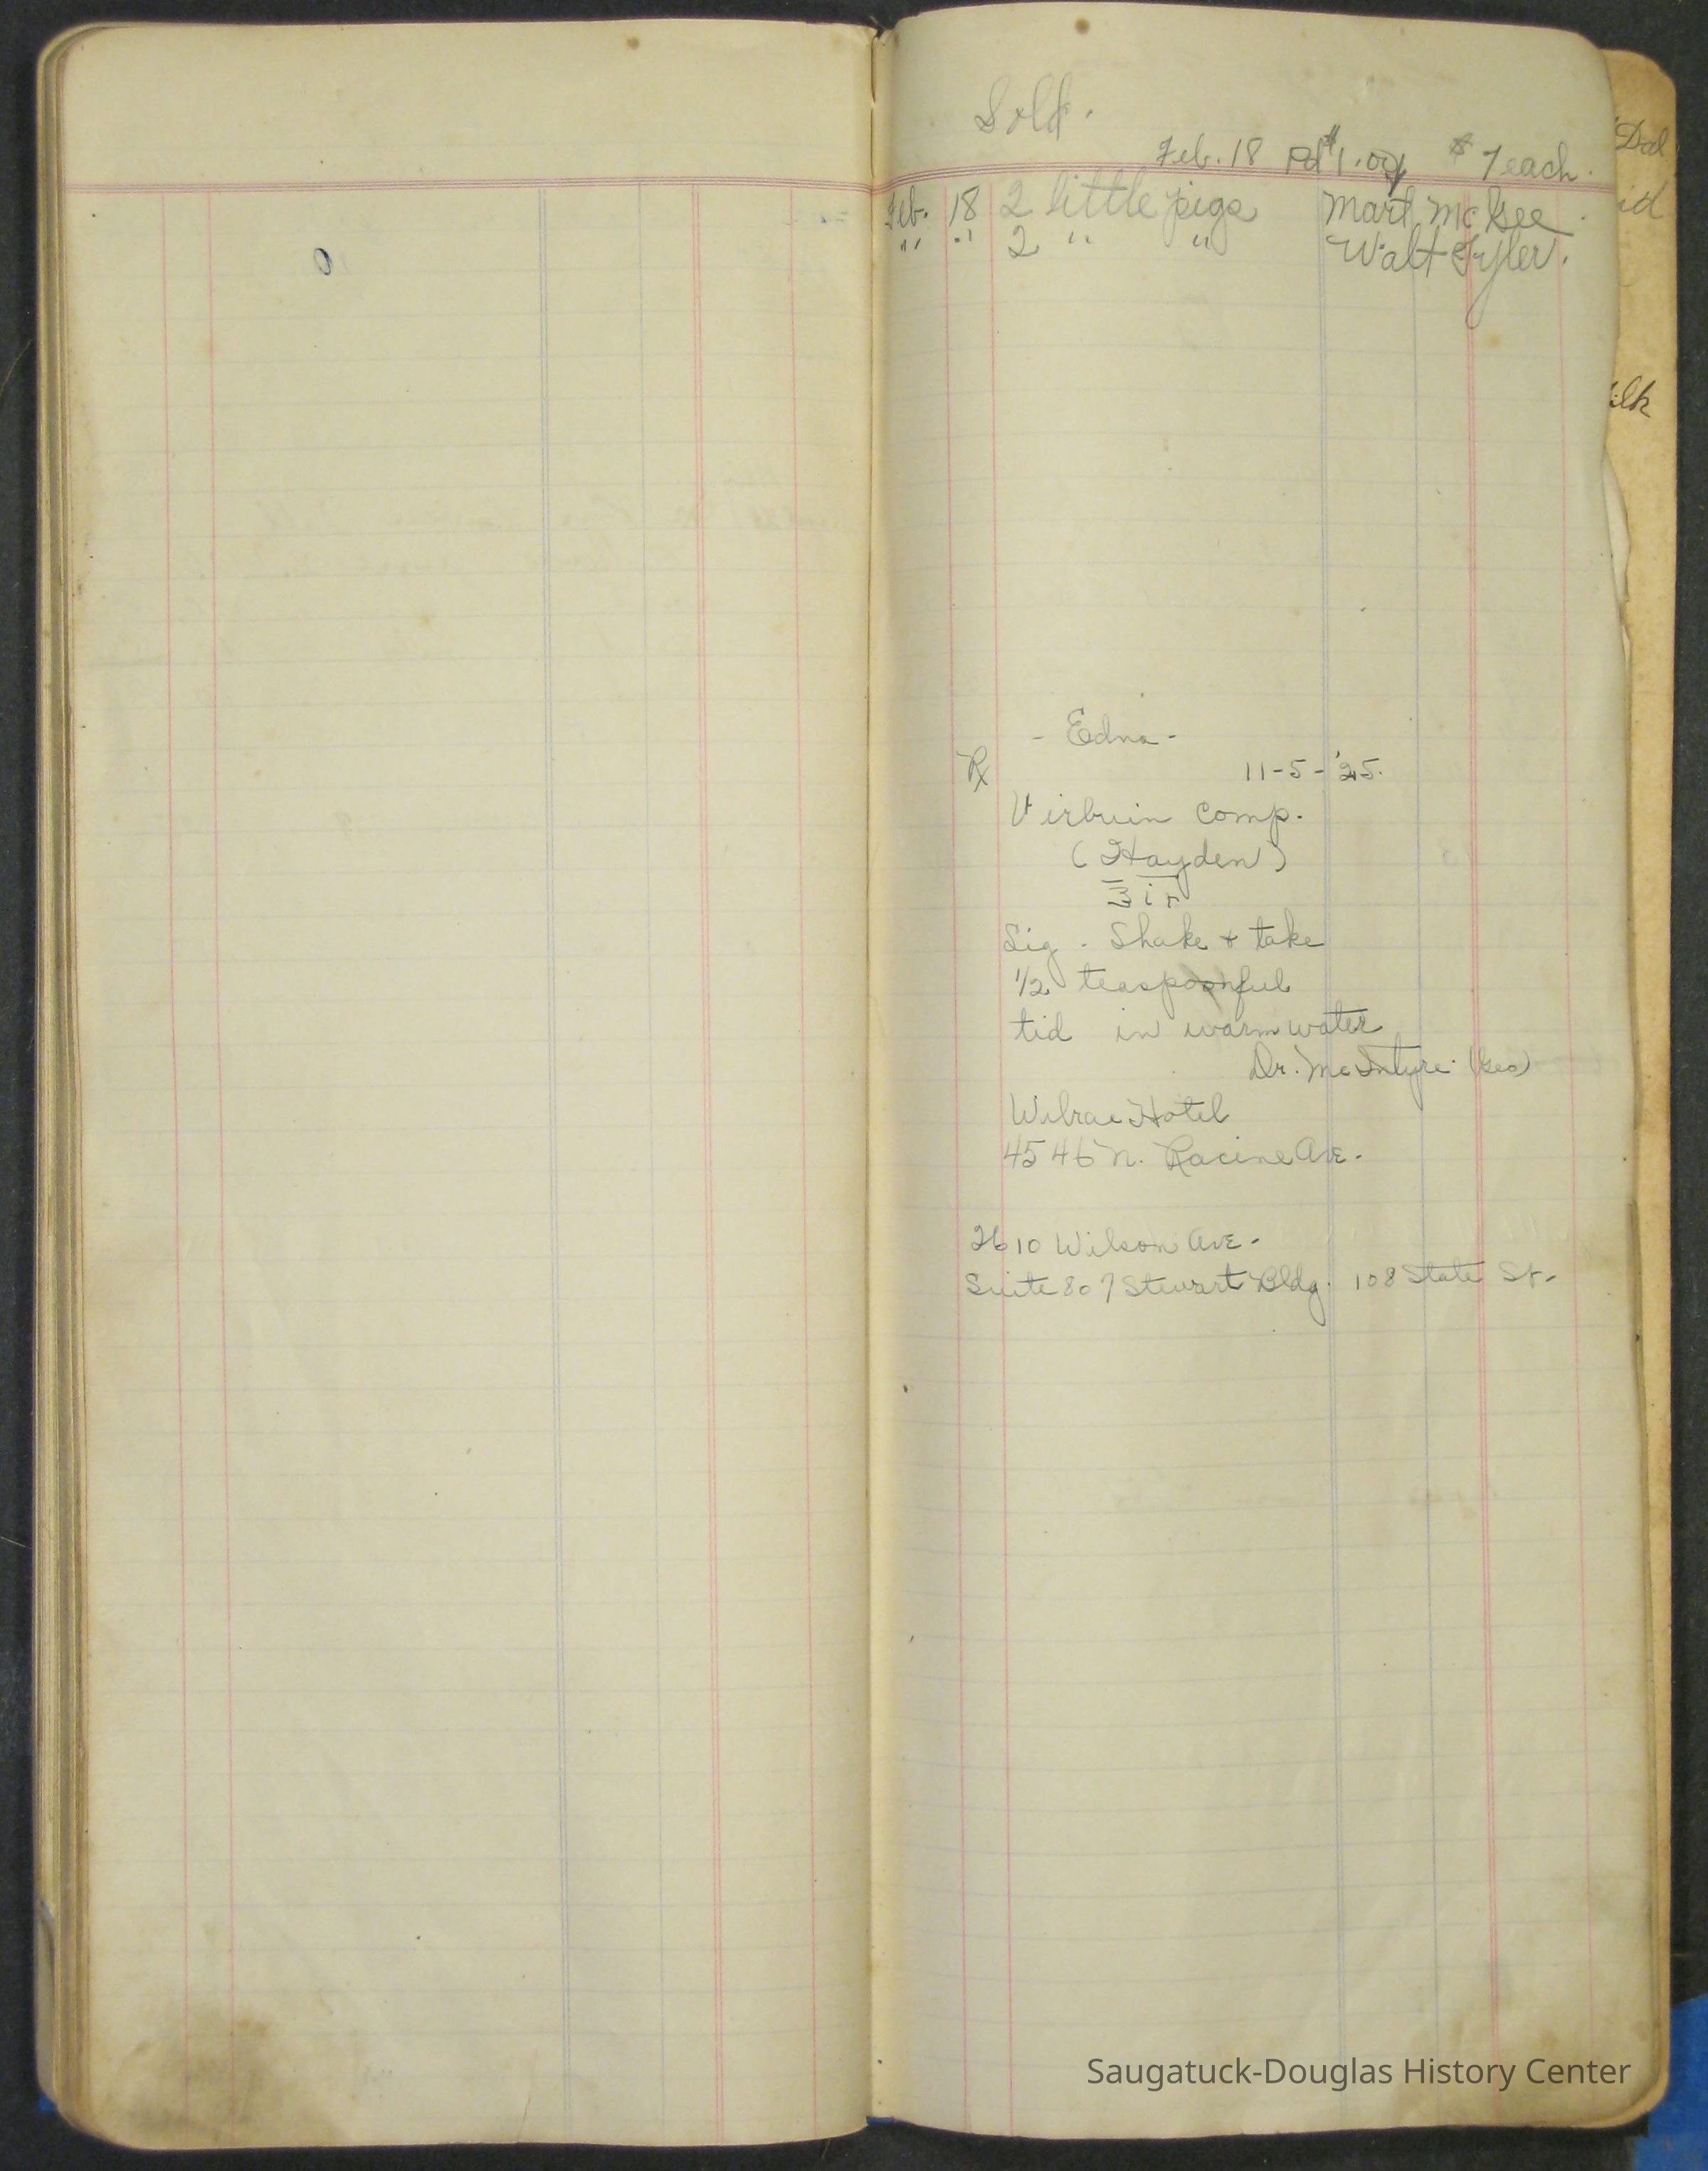 Sold.
Feb. 18 Pd $1.00 $7 each.
Feb. 18 2 little pigs Mart McGee.
" " 2 " " Walt
- Edna -
℞ 11-5-'25.
Virbuin Comp.
(Hayden)
Sig. Shake + take
1/2 teaspoonful
tid in warm water
Dr. McIntyre (Geo)
Wilrae Hotel
4546 N. Racine Ave.
2610 Wilson Ave.
Suite 807 Stewart Bldg. 108 State St.
Dal
id
ilk
Saugatuck-Douglas History Center